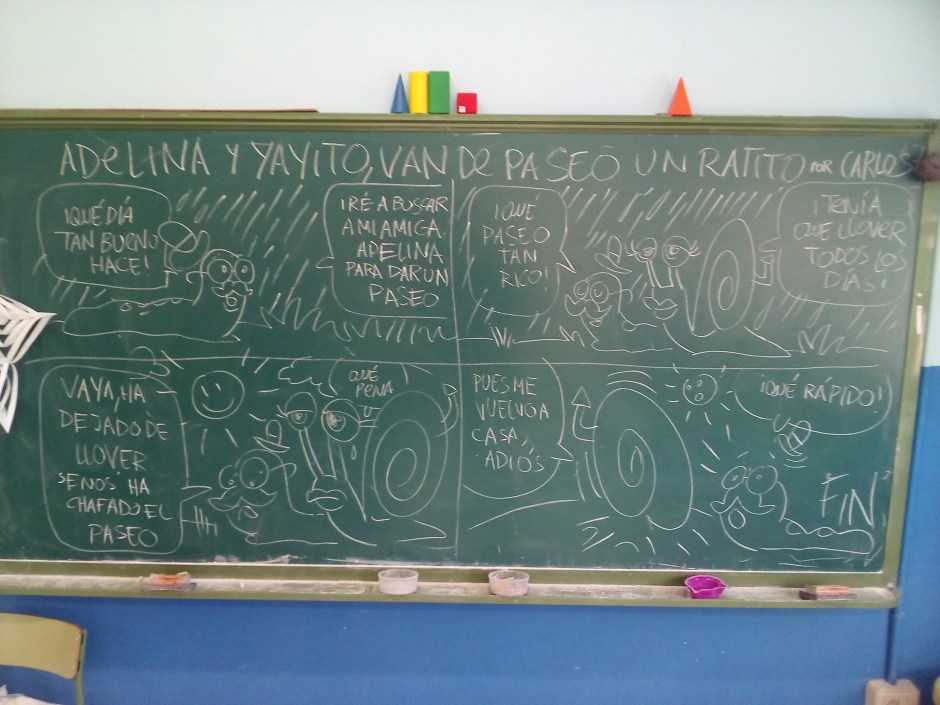 ADELINA Y YAYITO, VAN DE PASEO UN RATITO POR CARLOS
¡QUÉ DÍA
TAN BUENO
HACE!
IRÉ A BUSCAR
A MI AMIGA
ADELINA
PARA DAR UN
PASEO
¡QUÉ
PASEO
TAN
RICO!
¡TENÍA
QUE LLOVER
TODOS LOS
DÍAS!
VAYA, HA
DEJADO DE
LLOVER
SE NOS HA
CHAFADO EL
PASEO
QUÉ
PENA
PUES ME
VUELVO A
CASA,
ADIÓS
¡QUÉ RÁPIDO!
FIN